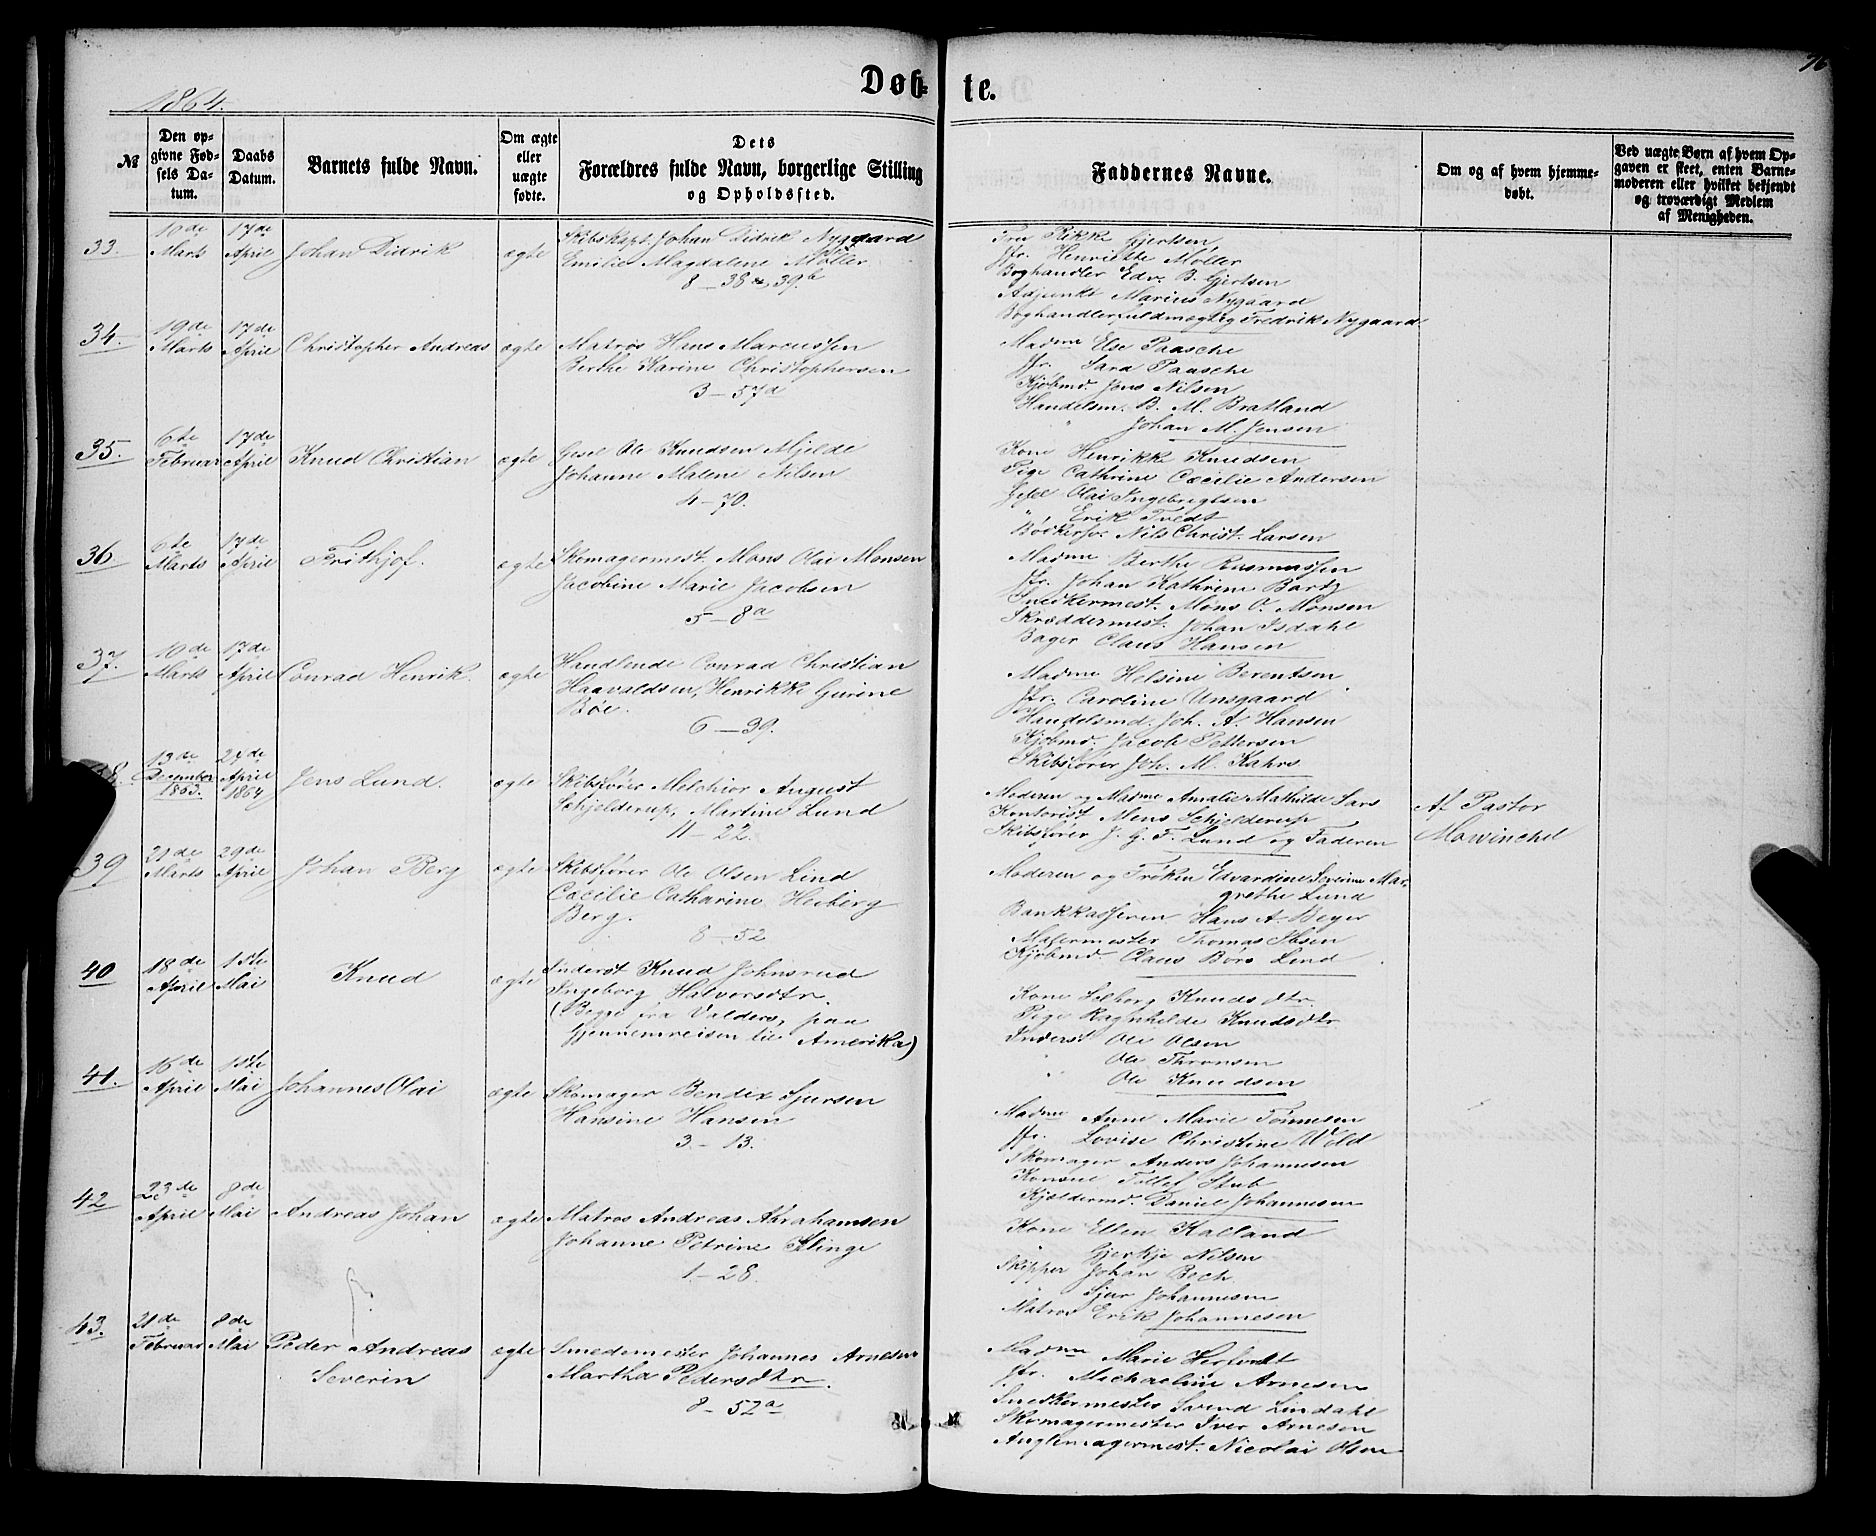 76
Døb- te.
1864.
№
Den opgivne Fødsels Datum.
Daabs Datum.
Barnets fulde Navn.
Om ægte eller uægte fødte.
Dets Forældres fulde Navn, borgerlige Stilling og Opholdssted.
Faddernes Navne.
Om og af hvem hjemmedøbt.
Ved uægte Børn af hvem Opgaven er skeet, enten Barnemoderen eller hvilket bekjendt og troværdigt Medlem af Menigheden.
33. 10de Marts 17de April Johan Didrik ægte
Skibskapt. Johan Didrik Nygaard
Emilie Magdalene Møller
8 – 38 & 39b
Fru Rikke Gjertsen
Jfr. Henriette Møller
Boghandler Edv. B. Gjertsen
Adjunkt Marius Nygaard
Boghandlerfuldmægtig Fredrik Nygaard
34. 19de Marts 17de April Christopher Andreas ægte
Matros Hans Marcussen
Berthe Karine Christophersen
3 – 57a
Madme Else Paasche
Jfr. Sara Paasche
Kjøbmd. Jens Nilsen
Handelsm. B. M. Bratland
" Johan M. Jensen
35. 6te Februar 17de April Knud Christian ægte
Gesel Ole Knudsen Mjelde
Johanne Malene Nilsen
4 – 70.
Kone Henrikke Knudsen
Pige Cathrine Cæcilie Andersen
Gesel Olai Ingebrigtsen
" Erik Tvedt
Bødkersv. Nils Christ. Larsen
36. 6te Marts 17de April Frithjof. ægte
Skomagermest. Mons Olai Monsen
Jacobine Marie Jacobsen
5 – 8a
Madme Berthe Rasmussen
Jfr. Johan Kathrine Bartz
Snedkermest. Mons O. Monsen
Skræddermest. Johan Isdahl
Bager Claus Hansen
37. 10de Marts 17de April Conrad Henrik. ægte
Handlende Conrad Christian
Haavaldsen, Henrikke Gurine
Bøe.
6 – 39.
Madme Helsine Berentsen
Jfr. Caroline Unsgaard
Handelsmd. Joh. A. Hansen
Kjøbmd. Jacob Pettersen
Skibsfører Joh. M. Kahrs
38. 13de December 1863. 24de April 1864 Jens Lund. ægte
Skibsfører Melchior August
Schjelderup, Martine Lund
11 – 22.
Moderen og Madme Amalie Mathilde Sars
Kontorist Mens Schjelderup
Skibsfører J. G. F. Lund og Faderen
Af Pastor
Mowinckel
39 21de Marts 29de April Johan Berg ægte
Skibsfører Ole Olsen Lind
Cæcilie Catharine Heiberg
Berg.
8 – 52
Moderen og Frøken Edvardine Severine Margrethe Lund
Bankkasserer Hans A. Beyer
Malermester Thomas Ibsen
Kjøbmd. Claus Børs Lind
40 18de April 1ste Mai Knud ægte
Inderst Knud Johnsrud
Ingeborg Halvorsdtr.
(Begge fra Valders, paa
Gjennemreisen til Amerika)
Kone Solborg Knudsdtr.
Pige Ragnhilde Knudsdtr
Inderst Ole Olsen
" Ole Thronsen
Ole Knudsen
41. 16de April 1ste Mai Johannes Olai ægte
Skomager Bendix Sjursen
Hansine Hansen
3 – 13.
Madme Anne Marie Tønnesen
Jfr. Lovise Christine Wold
Skomager Anders Johannesen
Konsul Tollef Stub
Kjældermd. Daniel Johannesen
42 23de April 8de Mai Andreas Johan ægte
Matros Andreas Abrahamsen
Johanne Petrine Klinge
1 – 28.
Kone Ellen Kalland
" Gjertje Nilsen
Skipper Johan Bech
" Sjur Johannesen
Matros Erik Johannesen
43. 21de Februar 8de Mai Peder Andreas
Severin ægte
Smedemester Johannes Arnesen
Martha Pedersdtr.
8 – 52a
Madme Marie Herfindt
Jfr. Michaeline Arnesen
Snedkermester Svend Lindahl
Skomagermester Iver Arnesen
Nicolai Olsen